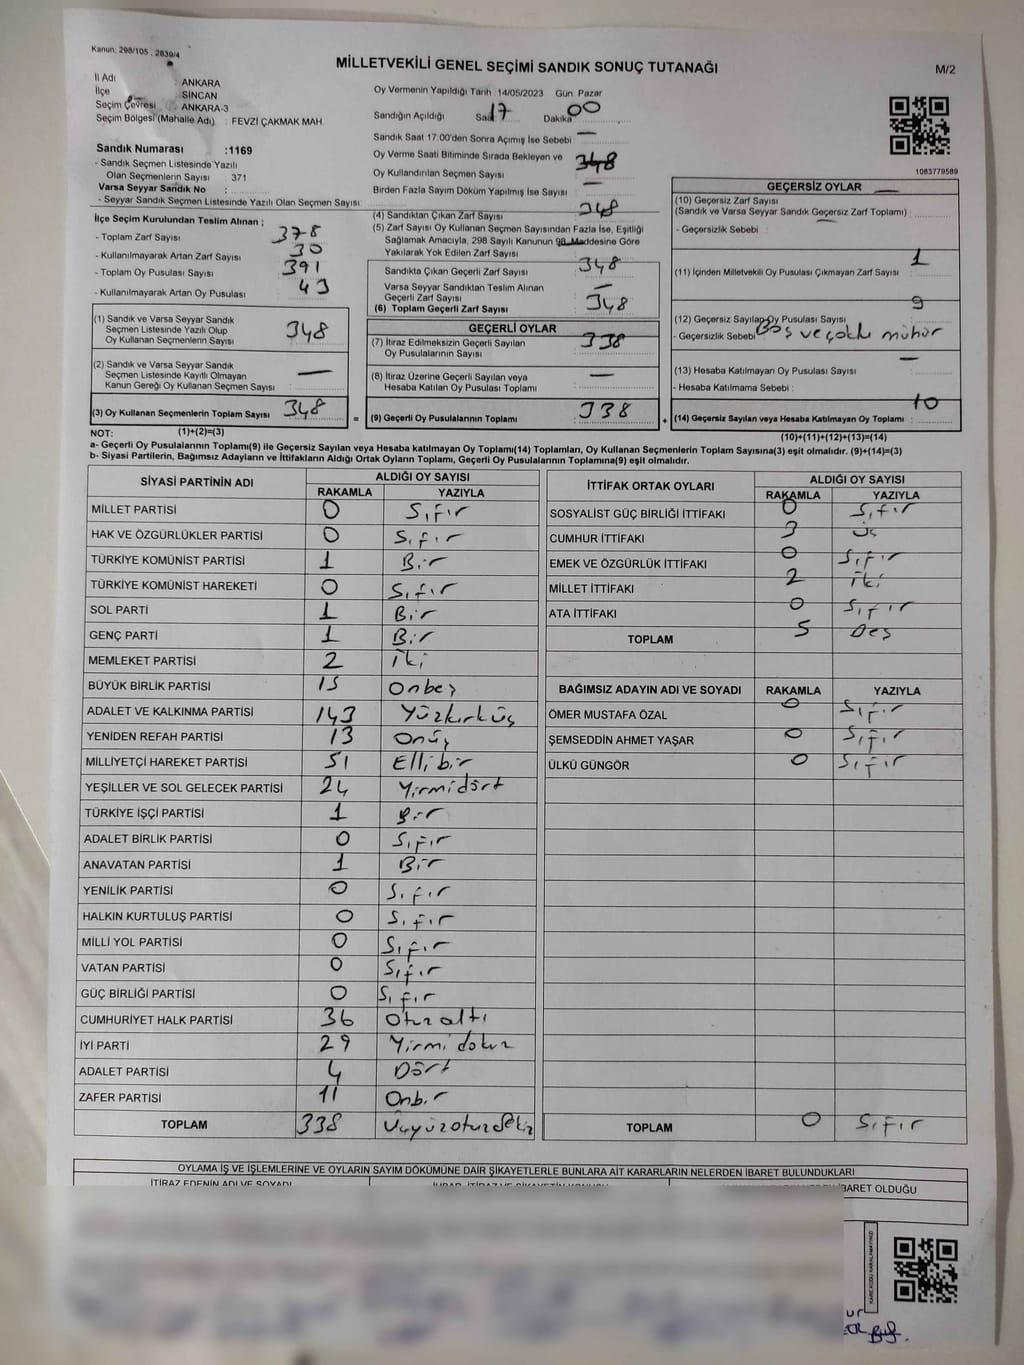 Kanun: 298/105 , 2839/4
MİLLETVEKİLİ GENEL SEÇİMİ SANDIK SONUÇ TUTANAĞI
M/2
İl Adı : ANKARA
İlçe : SİNCAN
Seçim Çevresi : ANKARA-3
Seçim Bölgesi (Mahalle Adı) : FEVZİ ÇAKMAK MAH.
Sandık Numarası :1169
- Sandık Seçmen Listesinde Yazılı
Olan Seçmenlerin Sayısı : 371
Varsa Seyyar Sandık No :
- Seyyar Sandık Seçmen Listesinde Yazılı Olan Seçmen Sayısı:
Oy Vermenin Yapıldığı Tarih :14/05/2023 Gün: Pazar
Sandığın Açıldığı Saat 17 Dakika 00
Sandık Saat 17:00'den Sonra Açımış İse Sebebi —
Oy Verme Saati Bitiminde Sırada Bekleyen ve
Oy Kullandırılan Seçmen Sayısı 348
Birden Fazla Sayım Döküm Yapılmış İse Sayısı —
1083779589
İlçe Seçim Kurulundan Teslim Alınan ;
- Toplam Zarf Sayısı 378
- Kullanılmayarak Artan Zarf Sayısı 30
- Toplam Oy Pusulası Sayısı 391
- Kullanılmayarak Artan Oy Pusulası 43
(1) Sandık ve Varsa Seyyar Sandık
Seçmen Listesinde Yazılı Olup
Oy Kullanan Seçmenlerin Sayısı 348
(2) Sandık ve Varsa Seyyar Sandık
Seçmen Listesinde Kayıtlı Olmayan
Kanun Gereği Oy Kullanan Seçmen Sayısı —
(3) Oy Kullanan Seçmenlerin Toplam Sayısı 348
(1)+(2)=(3)
(4) Sandıktan Çıkan Zarf Sayısı 348
(5) Zarf Sayısı Oy Kullanan Seçmen Sayısından Fazla İse, Eşitliği
Sağlamak Amacıyla, 298 Sayılı Kanunun 98. Maddesine Göre
Yakılarak Yok Edilen Zarf Sayısı —
Sandıkta Çıkan Geçerli Zarf Sayısı 348
Varsa Seyyar Sandıktan Teslim Alınan
Geçerli Zarf Sayısı —
(6) Toplam Geçerli Zarf Sayısı 348
GEÇERLİ OYLAR
(7) İtiraz Edilmeksizin Geçerli Sayılan
Oy Pusulalarının Sayısı 338
(8) İtiraz Üzerine Geçerli Sayılan veya
Hesaba Katılan Oy Pusulaları Toplamı —
= (9) Geçerli Oy Pusulalarının Toplamı 338
GEÇERSİZ OYLAR
(10) Geçersiz Zarf Sayısı —
(Sandık ve Varsa Seyyar Sandık Geçersiz Zarf Toplamı) :
- Geçersizlik Sebebi :
(11) İçinden Milletvekili Oy Pusulası Çıkmayan Zarf Sayısı 1
(12) Geçersiz Sayılan Oy Pusulası Sayısı 9
- Geçersizlik Sebebi Boş ve çoklu mühür
(13) Hesaba Katılmayan Oy Pusulası Sayısı —
- Hesaba Katılmama Sebebi :
+ (14) Geçersiz Sayılan veya Hesaba Katılmayan Oy Toplamı 10
(10)+(11)+(12)+(13)=(14)
NOT:
a- Geçerli Oy Pusulalarının Toplamı(9) ile Geçersiz Sayılan veya Hesaba katılmayan Oy Toplamı(14) Toplamları, Oy Kullanan Seçmenlerin Toplam Sayısına(3) eşit olmalıdır. (9)+(14)=(3)
b- Siyasi Partilerin, Bağımsız Adayların ve İttifakların Aldığı Ortak Oyların Toplamı, Geçerli Oy Pusulalarının Toplamına(9) eşit olmalıdır.
SİYASİ PARTİNİN ADI ALDIĞI OY SAYISI
RAKAMLA YAZIYLA
MİLLET PARTİSİ 0 Sıfır
HAK VE ÖZGÜRLÜKLER PARTİSİ 0 Sıfır
TÜRKİYE KOMÜNİST PARTİSİ 1 Bir
TÜRKİYE KOMÜNİST HAREKETİ 0 Sıfır
SOL PARTİ 1 Bir
GENÇ PARTİ 1 Bir
MEMLEKET PARTİSİ 2 iki
BÜYÜK BİRLİK PARTİSİ 15 Onbeş
ADALET VE KALKINMA PARTİSİ 143 Yüzkırküç
YENİDEN REFAH PARTİSİ 13 Onüç
MİLLİYETÇİ HAREKET PARTİSİ 51 Ellibir
YEŞİLLER VE SOL GELECEK PARTİSİ 24 Yirmidört
TÜRKİYE İŞÇİ PARTİSİ 1 Bir
ADALET BİRLİK PARTİSİ 0 Sıfır
ANAVATAN PARTİSİ 1 Bir
YENİLİK PARTİSİ 0 Sıfır
HALKIN KURTULUŞ PARTİSİ 0 Sıfır
MİLLİ YOL PARTİSİ 0 Sıfır
VATAN PARTİSİ 0 Sıfır
GÜÇ BİRLİĞİ PARTİSİ 0 Sıfır
CUMHURİYET HALK PARTİSİ 36 Otuzaltı
İYİ PARTİ 29 Yirmidokuz
ADALET PARTİSİ 4 Dört
ZAFER PARTİSİ 11 Onbir
TOPLAM 338 Üçyüzotuzsekiz
İTTİFAK ORTAK OYLARI ALDIĞI OY SAYISI
RAKAMLA YAZIYLA
SOSYALİST GÜÇ BİRLİĞİ İTTİFAKI 0 Sıfır
CUMHUR İTTİFAKI 3 üç
EMEK VE ÖZGÜRLÜK İTTİFAKI 0 Sıfır
MİLLET İTTİFAKI 2 iki
ATA İTTİFAKI 0 Sıfır
TOPLAM 5 Beş
BAĞIMSIZ ADAYIN ADI VE SOYADI RAKAMLA YAZIYLA
ÖMER MUSTAFA ÖZAL 0 Sıfır
ŞEMSEDDİN AHMET YAŞAR 0 Sıfır
ÜLKÜ GÜNGÖR 0 Sıfır
TOPLAM 0 Sıfır
OYLAMA İŞ VE İŞLEMLERİNE VE OYLARIN SAYIM DÖKÜMÜNE DAİR ŞİKAYETLERLE BUNLARA AİT KARARLARIN NELERDEN İBARET BULUNDUKLARI
İTİRAZ EDENİN ADI VE SOYADI
İBARET OLDUĞU